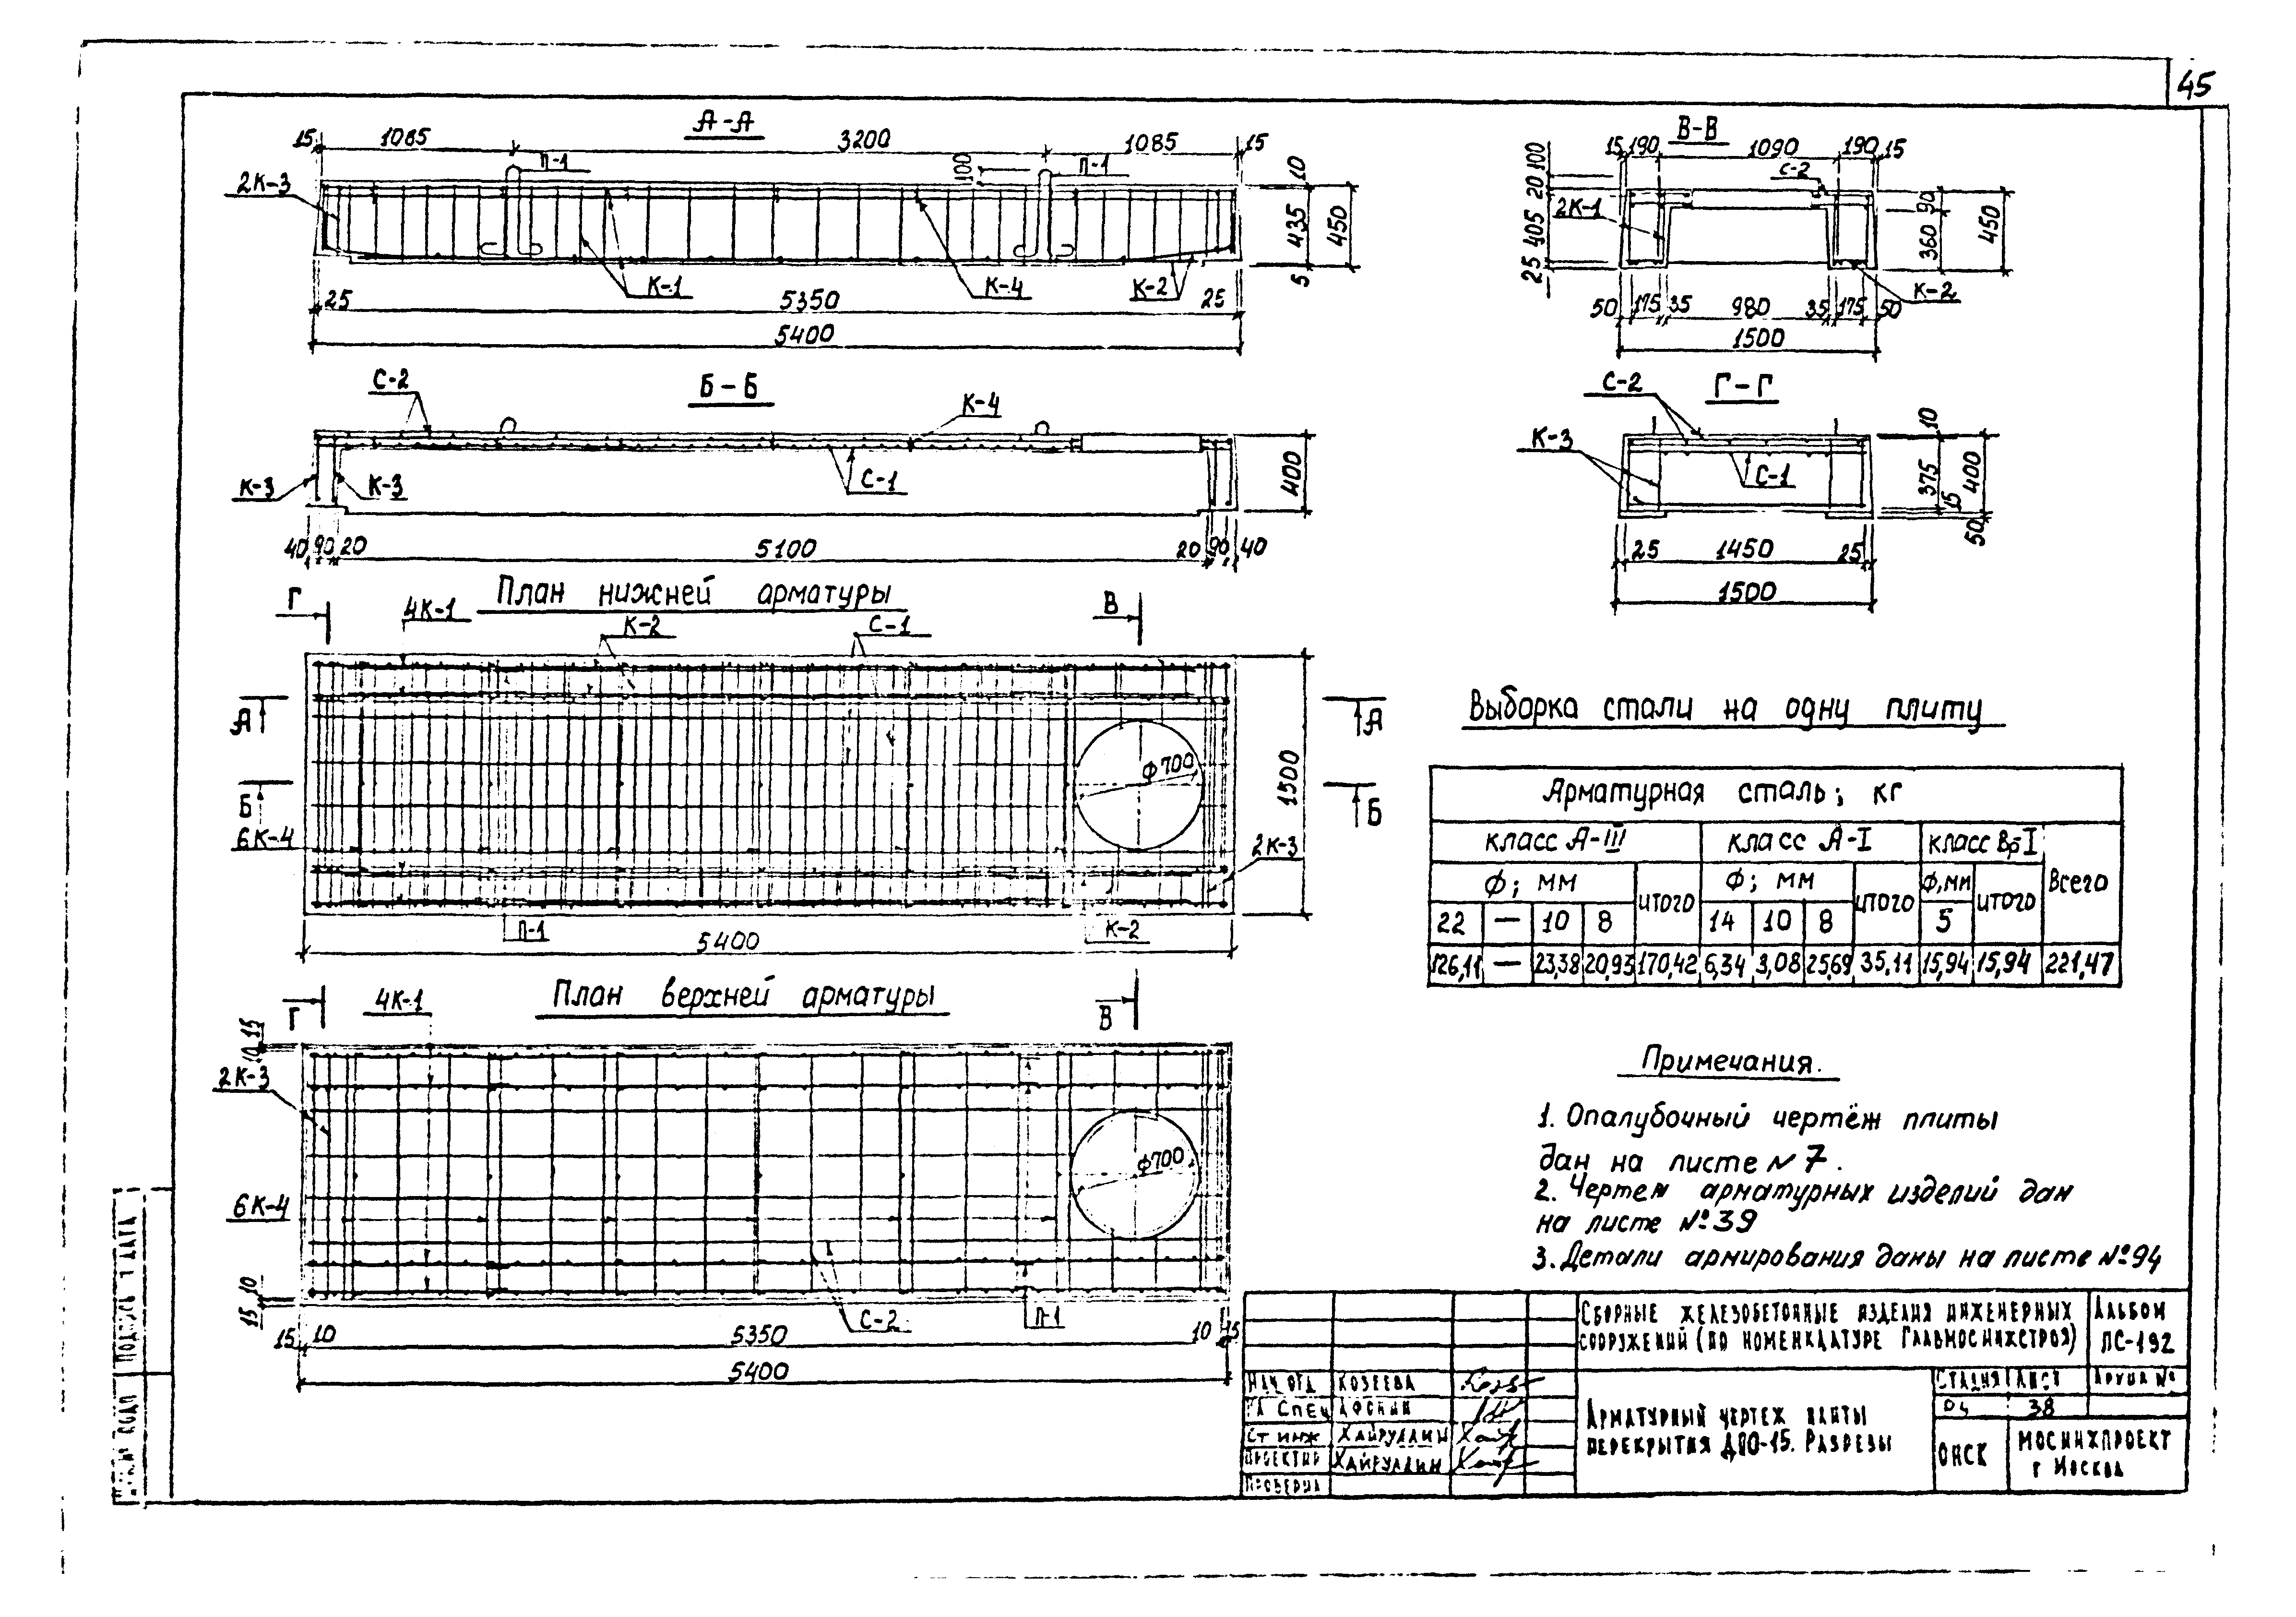 45
А-А
15 1085 3200 1085 15
П-1 100 П-1 10
2К-3
435 450
5
К-1 К-4 К-2
25 5350 25
5400
В-В
15 190 1090 190 15
100 20 405 25
С-2
2К-1
90 360 450
К-2
50 175 35 980 35 175 50
1500
Б-Б
С-2 К-4
К-3 К-3 С-1
400
40 90 20 5100 20 90 40
Г-Г
С-2
К-3
С-1
10 375 400
15 50
25 1450 25
1500
План нижней арматуры
Г 4К-1 К-2 С-1 В
А А
Б Б
ф700
1500
6К-4 2К-3
П-1 К-2
5400
План верхней арматуры
Г 4К-1 В
15 10
2К-3
ф700
6К-4
10 15
С-2 П-1
15 10 5350 10 15
5400
Выборка стали на одну плиту
Арматурная сталь; кг
класс А-III класс А-I класс ВрI Всего
Ф; мм итого Ф; мм итого Ф,мм итого
22 — 10 8 14 10 8 5
126,11 — 23,38 20,93 170,42 6,34 3,08 25,69 35,11 15,94 15,94 221,47
Примечания.
1. Опалубочный чертёж плиты
дан на листе N 7.
2. Чертеж арматурных изделий дан
на листе №39
3. Детали армирования даны на листе №94
Сборные железобетонные изделия инженерных
сооружений (по номенклатуре Главмосинжстроя)
Альбом
ПС-192
Нач. отд Козеева
Гл спец Афонин
Ст инж Хайруллин
Проектир Хайруллин
Проверил
Арматурный чертеж плиты
перекрытия ДПО-15. Разрезы
Стадия Лист Арх.инв №
РЧ 38
ОНСК
Мосинжпроект
г Москва
Подпись и дата